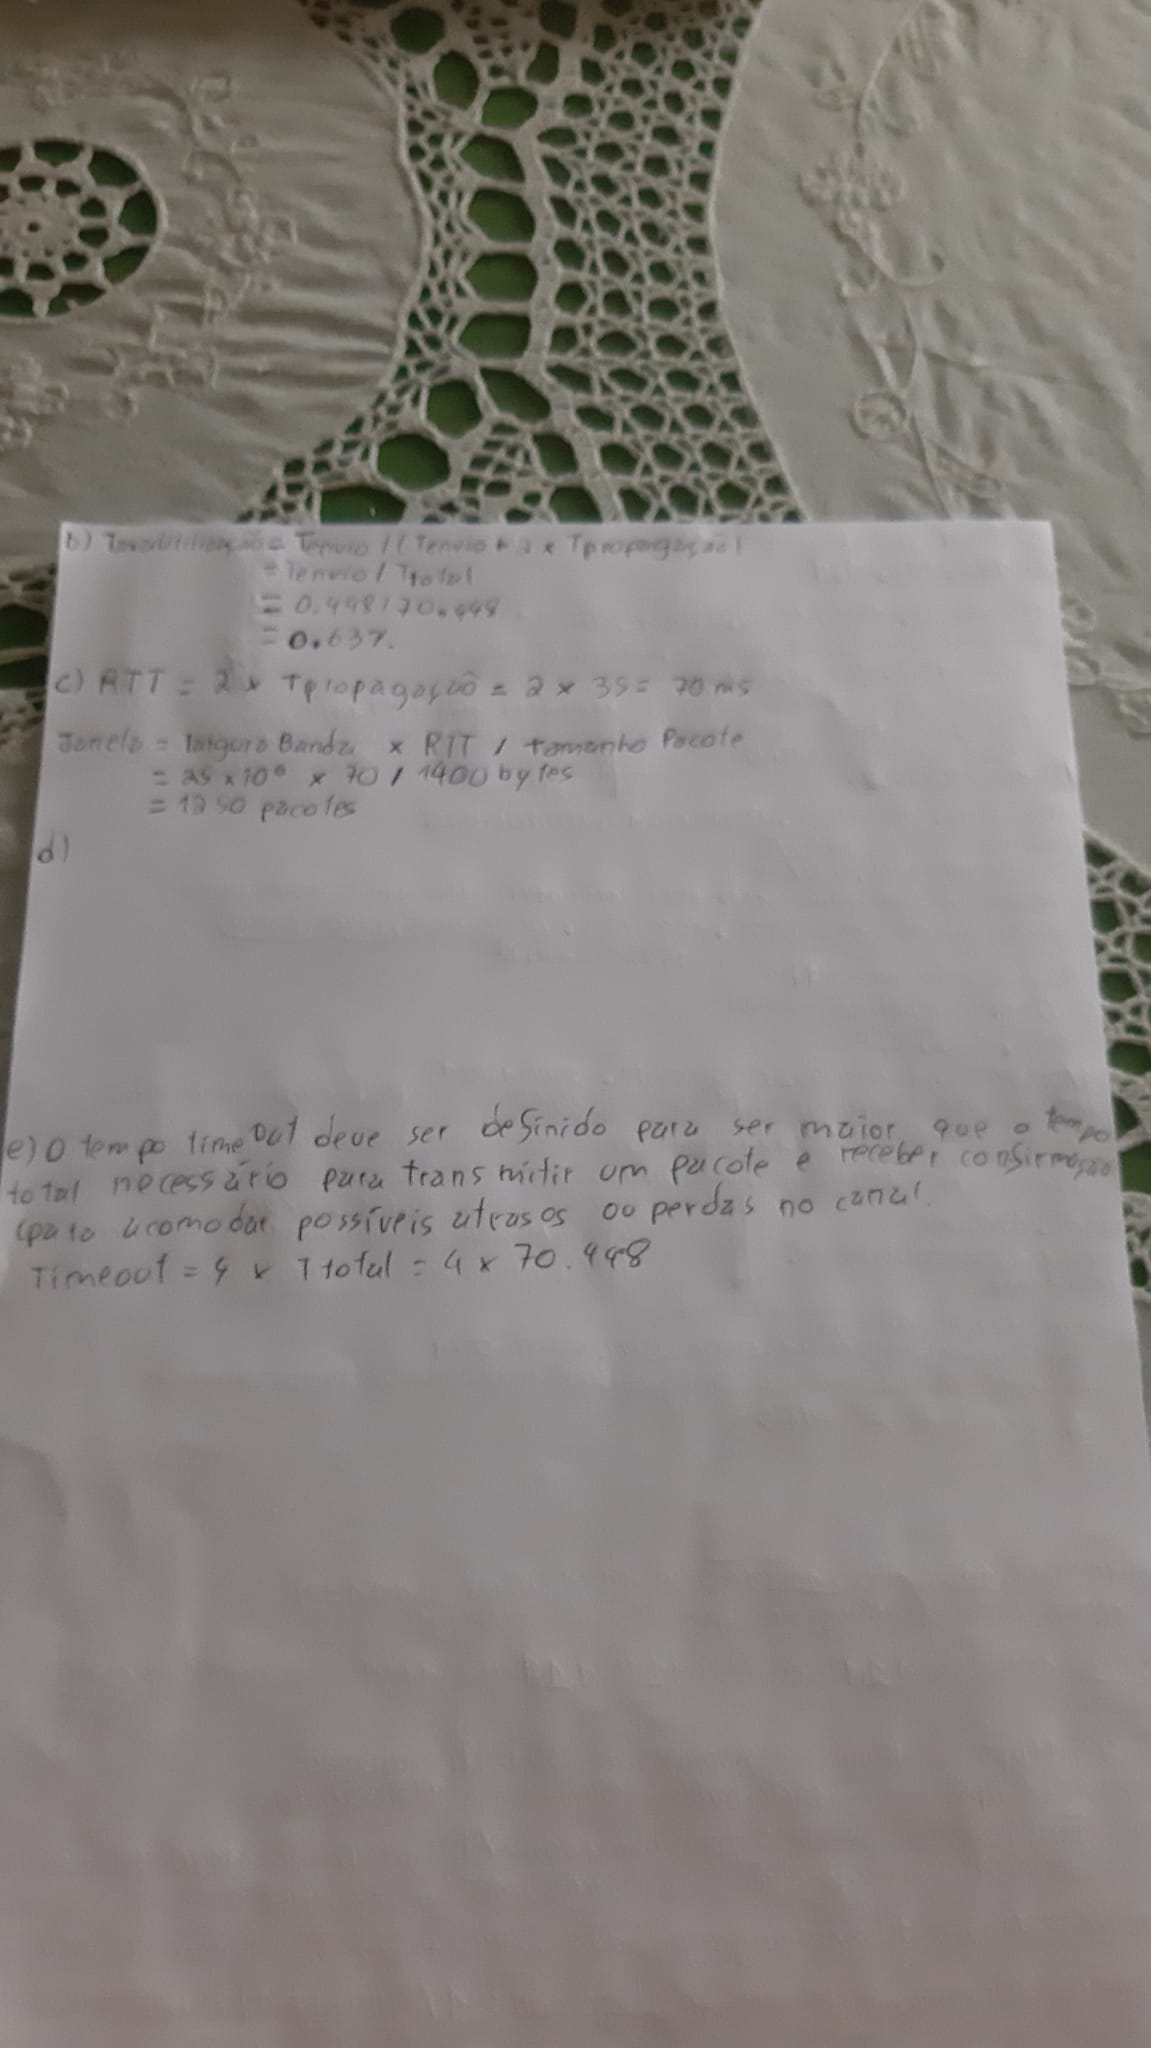 b) TaxaUtilização = Tenvio / (Tenvio + 2 x Tpropagação)
= Tenvio / Ttotal
= 0.448 / 70.448
= 0.63%.
c) RTT = 2 x Tpropagação = 2 x 35 = 70 ms
Janela = largura Banda x RTT / tamanho Pacote
= 25 x 10⁶ x 70 / 1400 bytes
= 1250 pacotes
d)
e) O tempo timeout deve ser definido para ser maior que o tempo
total necessário para transmitir um pacote e receber confirmação
(para acomodar possíveis atrasos ou perdas no canal.
Timeout = 4 x Ttotal = 4 x 70.448